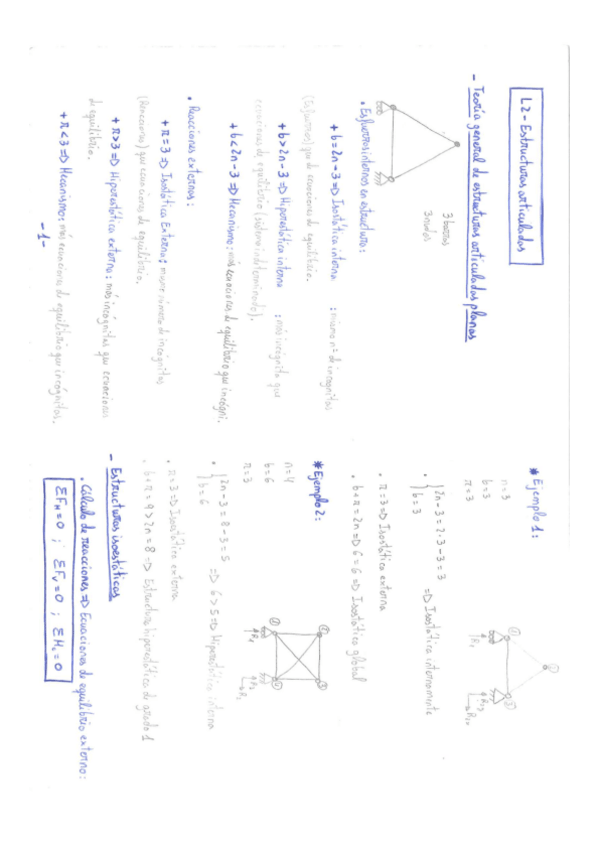 L2 - Estructuras articuladas
- Teoría general de estructuras articuladas planas
3 barras
3 nudos
• Esfuerzos internos en estructura:
+ b = 2n - 3 => Isostática interna : mismo nº de incognitas
(Esfuerzos) que de ecuaciones de equilibrio.
+ b > 2n - 3 => Hiperestática interna : más incógnita que
ecuaciones de equilibrio (sistema indeterminado).
+ b < 2n - 3 => Mecanismo: más ecuaciones de equilibrio que incógni.
• Reacciones externas:
+ r = 3 => Isostática Externa: mismo número de incógnitas
(Reacciones) que ecuaciones de equilibrio.
+ r > 3 => Hiperestática externa: más incógnitas que ecuaciones
de equilibrio.
+ r < 3 => Mecanismo: más ecuaciones de equilibrio que incógnitas.
- 1 -
* Ejemplo 1:
n = 3
b = 3
r = 3
• { 2n - 3 = 2·3 - 3 = 3
b = 3 => Isostática internamente
• r = 3 => Isostática externa
• b + r = 2n => 6 = 6 => Isostática global
* Ejemplo 2:
n = 4
b = 6
r = 3
• { 2n - 3 = 8 - 3 = 5
b = 6 => 6 > 5 => Hiperestática interna
• r = 3 => Isostática externa
• b + r = 9 > 2n = 8 => Estructura hiperestática de grado 1
- Estructuras isostáticas
• Cálculo de reacciones => Ecuaciones de equilibrio externo:
ΣF_H = 0 ; ΣF_V = 0 ; ΣM_c = 0